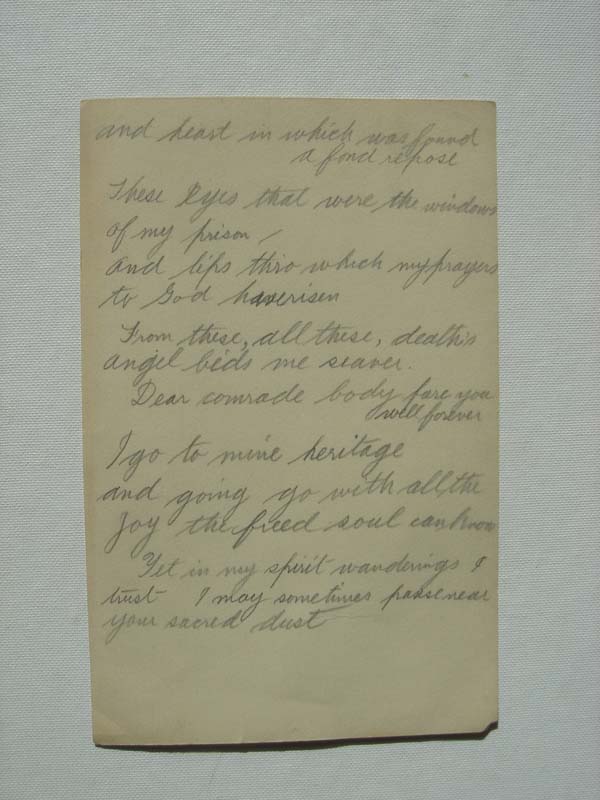 and heart in which was found
a fond repose
These Eyes that were the windows
of my prison
and lips thro which my prayers
to God have risen
From these, all these, death's
angel bids me seaver.
Dear comrade body fare you
well forever
I go to mine heritage
and going go with all the
joy the freed soul can know
Yet in my spirit wanderings I
trust I may sometimes pass near
your sacred dust